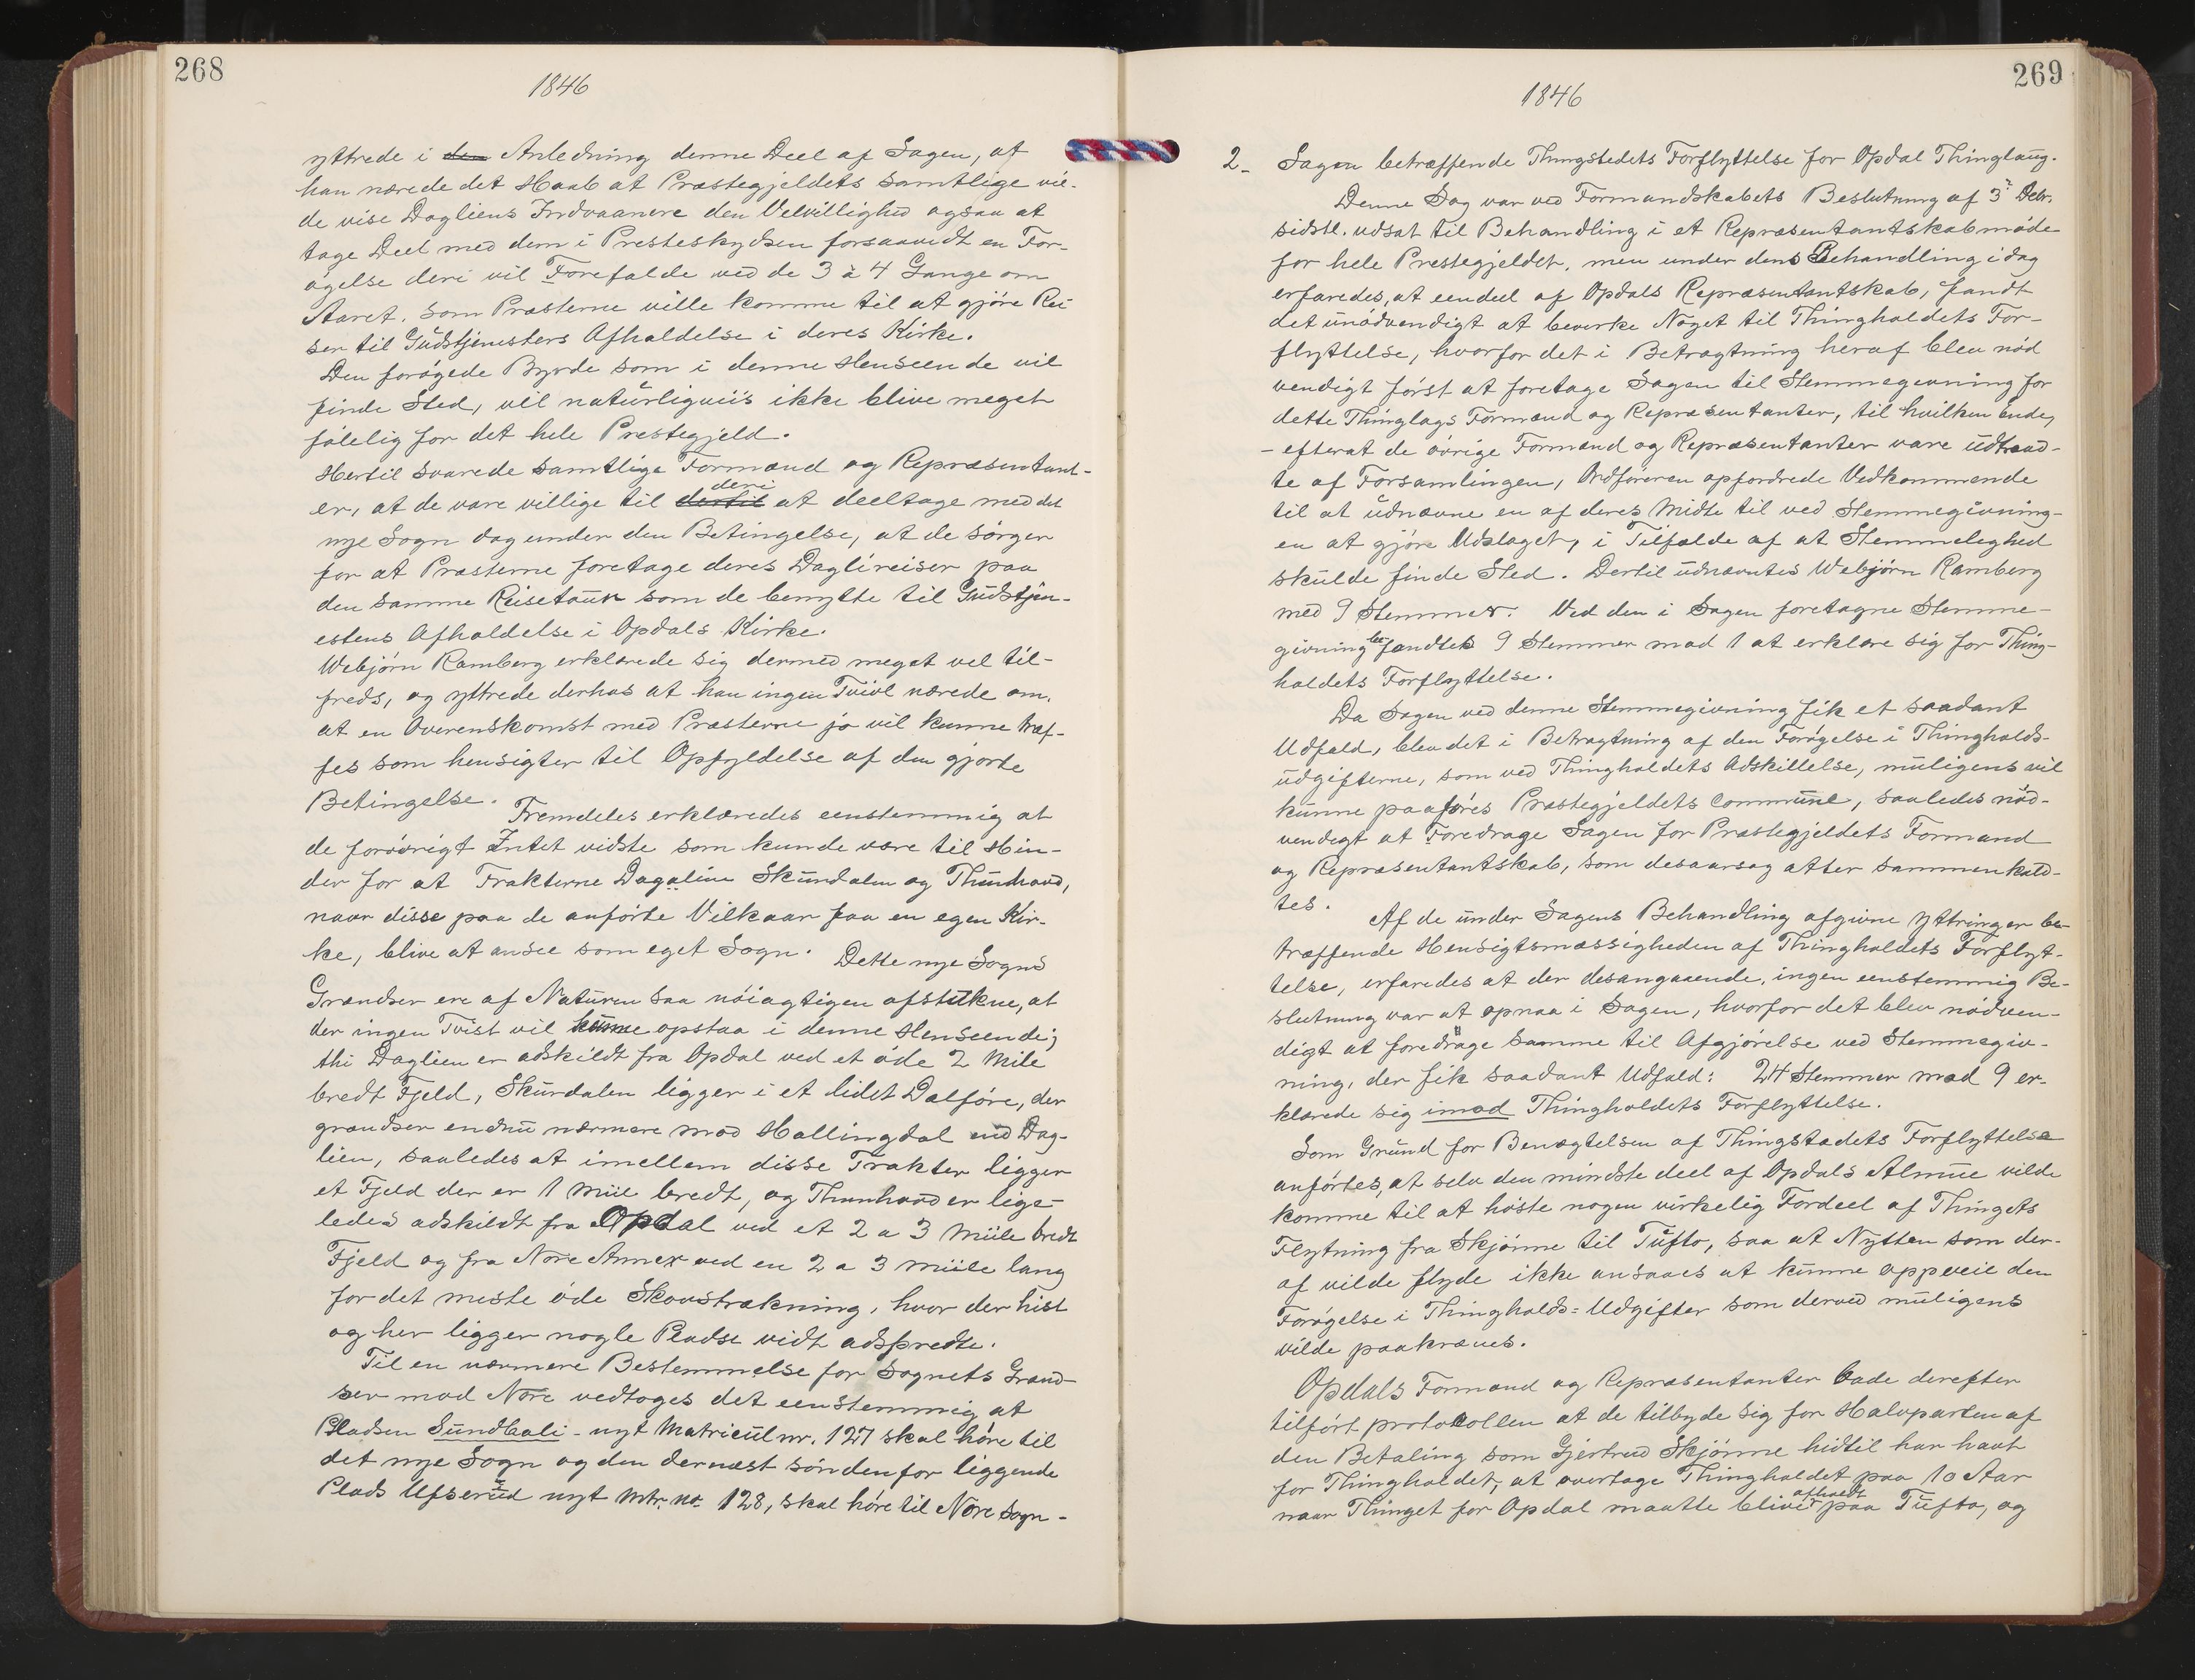 268
1846
yttrede i den Anledning denne Deel af Sagen, at
han nærede det Haab at Præstegjeldets samtlige vil-
de vise Dagliens Indvaanere den Velvillighed ogsaa at
tage Deel med dem i Presteskydsen forsaavidt en For-
øgelse deri vil Forefalde ved de 3 à 4 Gange om
Aaret, som Præsterne ville komme til at gjøre Rei-
ser til Gudstjenesters Afholdelse i deres Kirke.
Den forøgede Byrde som i denne Henseende vil
finde Sted, vil naturligviis ikke blive meget
følelig for det hele Prestegjeld.
Hertil svarede samtlige Formænd og Repræsentant-
er, at de vare villige til dertil deri at deeltage med det
nye Sogn dog under den Betingelse, at de sørger
for at Præsterne foretage deres Daglireiser paa
den samme Reisetour som de benytte til Gudstjen-
estens Afholdelse i Opdals Kirke.
Webjørn Ramberg erklærede sig dermed meget vel til-
freds, og yttrede derhos at han ingen Tvivl nærede om,
at en Overenskomst med Præsterne jo vil kunne træf-
fes som hensigter til Opfyldelse af den gjorte
Betingelse. Fremdeles erklæredes eenstemmig at
de forøvrigt Intet vidste som kunde være til Hin-
der for at Trakterne Dagalien Skurdalen og Thunhovd,
naar disse paa de anførte Vilkaar faa en egen Kir-
ke, blive at ansee som eget Sogn. Dette nye Sogns
Grændser ere af Naturen saa nøiagtigen afstukne, at
der ingen Tvist vil kunne opstaa i denne Henseende;
thi Daglien er adskildt fra Opdal ved et øde 2 Mile
bredt Fjeld, Skurdalen ligger i et lidet Dalføre, der
grændser endnu nærmere mod Hallingdal end Dag-
lien, saaledes at imellem disse Trakter ligger
et Fjeld der er 1 Miil bredt, og Thunhovd er lige-
ledes adskildt fra Opdal ved et 2 a 3 Miile bredt
Fjeld og fra Nore Annex ved en 2 a 3 miile lang
for det meste øde Skovstrækning, hvor der hist
og her ligger nogle Pladse vidt adspredte.
Til en nærmere Bestemmelse for Sognets Grænd-
ser mod Nore vedtoges det eenstemmig at
Pladsen Sundbali - nyt Matricul nr. 127 skal høre til
det nye Sogn og den dernæst søndenfor liggende
Plads Ufserud nyt Mtr. no. 128, skal høre til Nore Sogn -
269
1846
2 - Sagen betræffende Thingstedets Forflyttelse for Opdal Thinglaug.
Denne Sag var ved Formandskabets Beslutning af 3 Debr.
sidstl. udsat til Behandling i et Repræsentantskabmøde
for hele Prestegjeldet, men under dens Behandling idag
erfaredes, at eendeel af Opdals Repræsentantskab, fandt
det unødvendigt at bevirke Noget til Thingholdets For-
flyttelse, hvorfor det i Betragtning heraf blev nød
vendigt først at foretage Sagen til Stemmegivning for
dette Thinglags Formænd og Repræsentanter, til hvilken Ende,
- efterat de øvrige Formænd og Repræsentanter vare udtraad-
te af Forsamlingen, Ordføreren opfordrede Vedkommende
til at udnævne en af deres Midte til ved Stemmegivning-
en at gjøre Udslaget, i Tilfælde af at Stemmelighed
skulde finde Sted. Dertil udnævntes Webjørn Ramberg
med 9 Stemmer. Ved den i Sagen foretagne Stemme-
givning befandtes 9 Stemmer mod 1 at erklære sig for Thing-
holdets Forflyttelse.
Da Sagen ved denne Stemmegivning fik et saadant
Udfald, blev det i Betragtning af den Forøgelse i Thingholds-
udgifterne, som ved Thingholdets Adskillelse, muligens vil
kunne paaføres Præstegjeldets Commune, saaledes nød-
vendigt at Foredrage Sagen for Præstegjeldets Formænd
og Repræsentantskab, som desaarsag atter sammenkald-
tes. Af de under Sagens Behandling afgivne Yttringer be-
træffende Hensigtsmæssigheden af Thingholdets Forflyt-
telse, erfaredes at der desangaaende, ingen eenstemmig Be-
slutning var at opnaa i Sagen, hvorfor det blev nødven-
digt at foredrage samme til Afgjørelse ved Stemmegiv-
ning, der fik saadant Udfald: 24 Stemmer mod 9 er-
klærede sig imod Thingholdets Forflyttelse.
Som Grund for Benægtelsen af Thingstedets Forflyttelse
anførtes, at selv den mindste deel af Opdals Almue vilde
komme til at høste nogen virkelig Fordeel af Thingets
Flytning fra Skjønne til Tufto, saa at Nytten som der-
af vilde flyde ikke ansaaes at kunne opveie den
Forøgelse i Thingholds-Udgifter som derved muligens
vilde paakræves.
Opdals Formænd og Repræsentanter bade derefter
tilført protocollen at de tilbyde sig for Halvparten af
den Betaling som Gjertrud Skjønne hidtil har havt
for Thingholdet, at overtage Thingholdet paa 10 Aar
naar Thinget for Opdal maatte blive afholdt paa Tufto, og